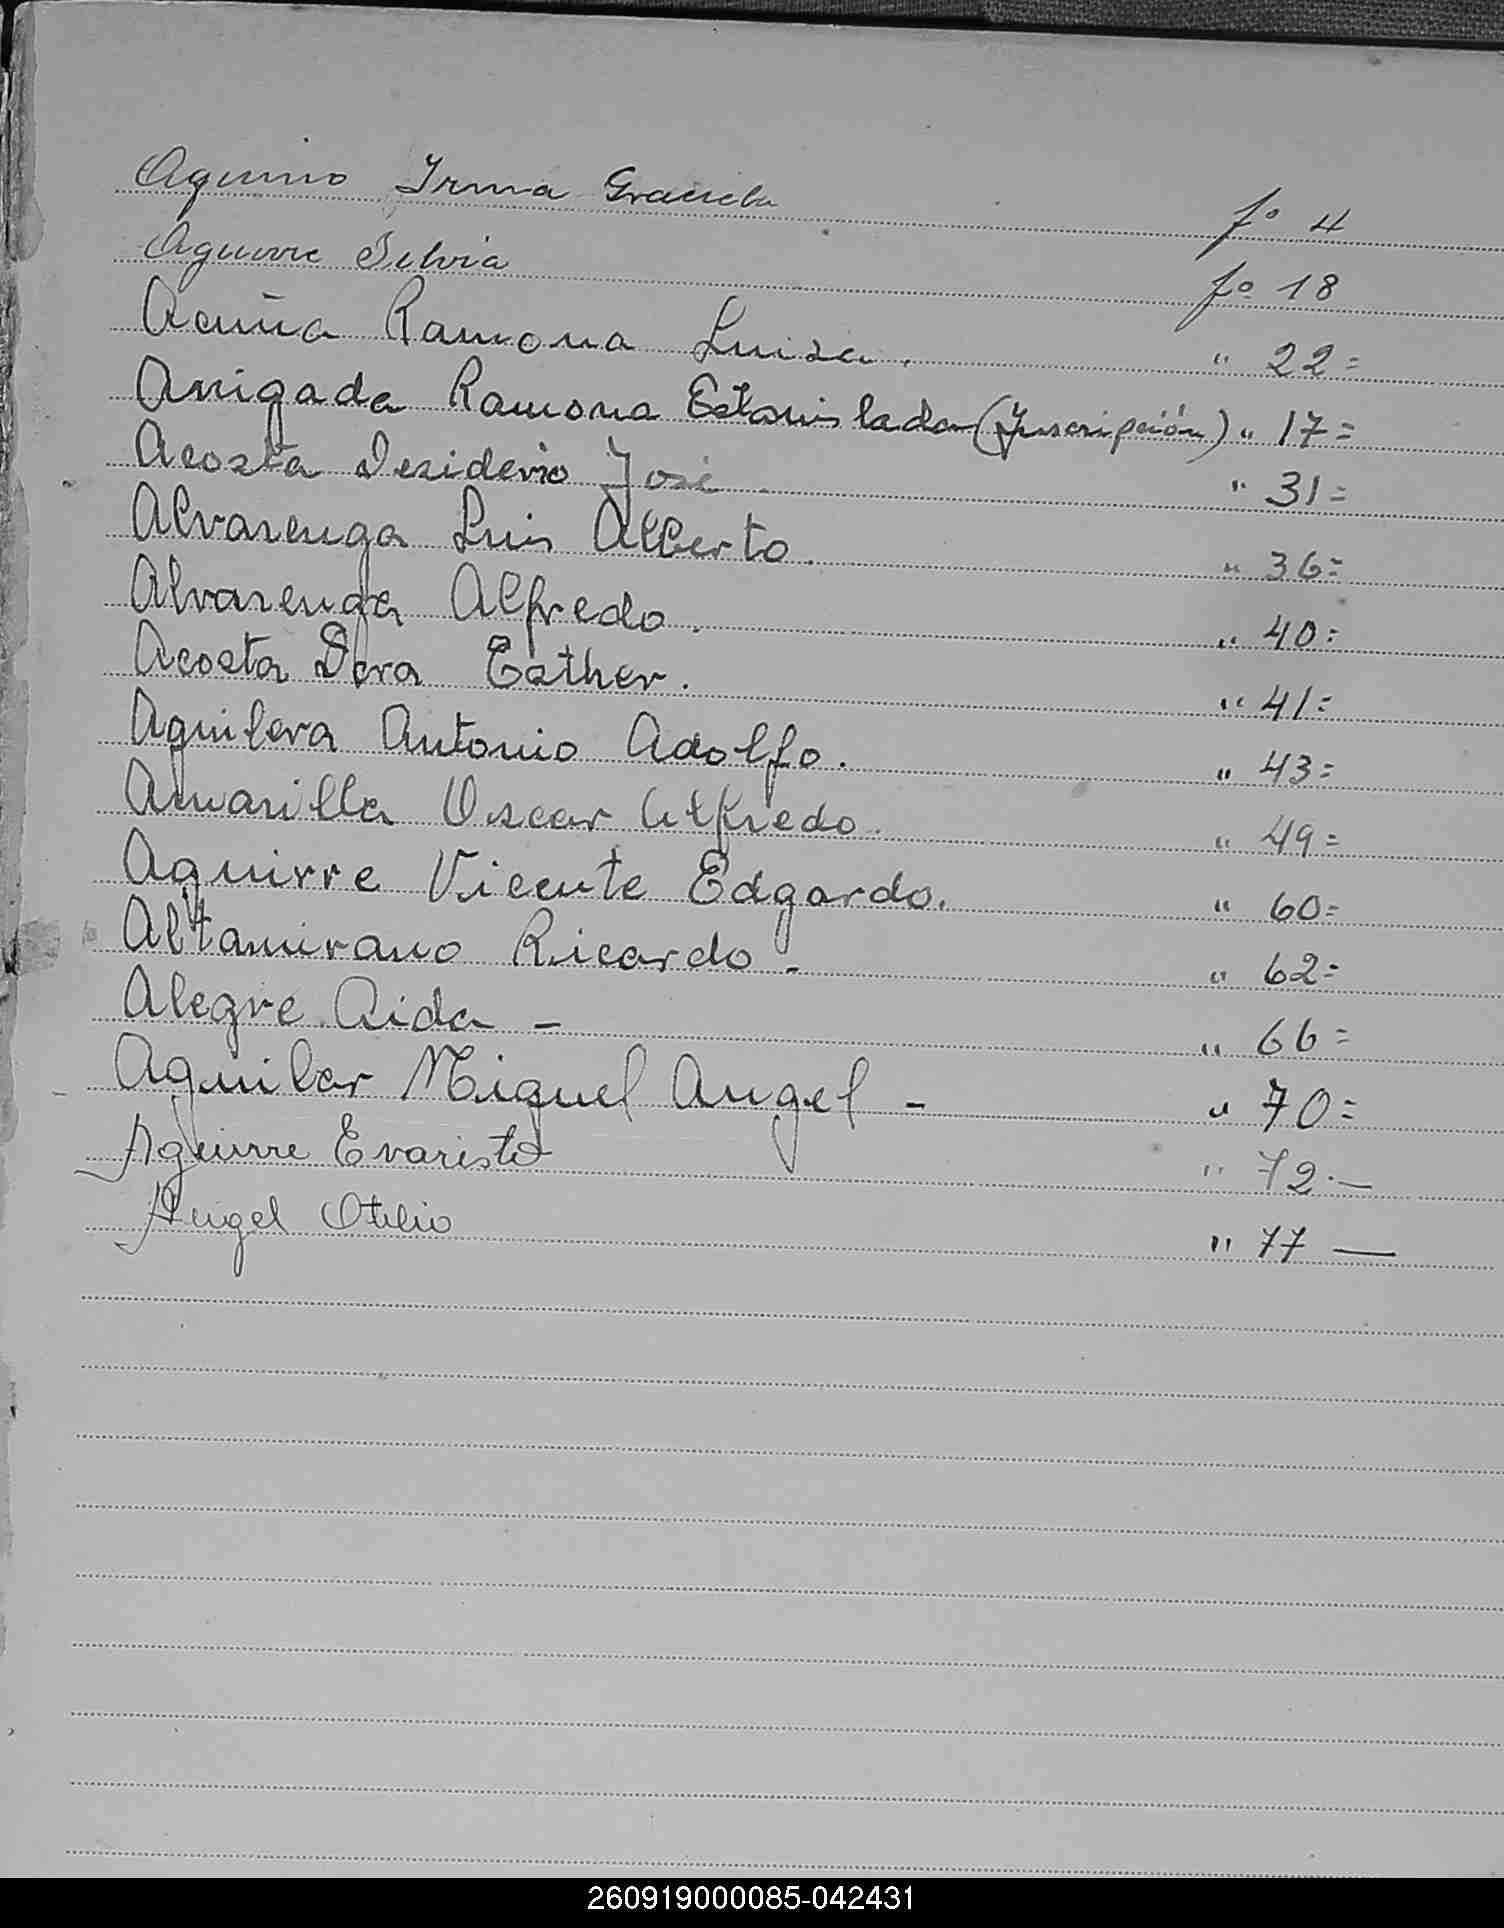 Aquino Irma Graciela fº 4
Aguirre Silvia fº 18
Acuña Ramona Luisa. " 22=
Arrigada Ramona Estanislada (Inscripción) " 17=
Acosta Desiderio José " 31=
Alvarenga Luis Alberto. " 36=
Alvarenga Alfredo. " 40=
Acosta Dora Esther. " 41=
Aguilera Antonio Adolfo. " 43=
Amarilla Oscar Alfredo. " 49=
Aguirre Vicente Edgardo. " 60=
Altamirano Ricardo - " 62=
Alegre Aida - " 66=
Aguilar Miguel Angel - " 70=
Aguirre Evaristo " 72.—
Angel Otilio " 77 —
260919000085-042431